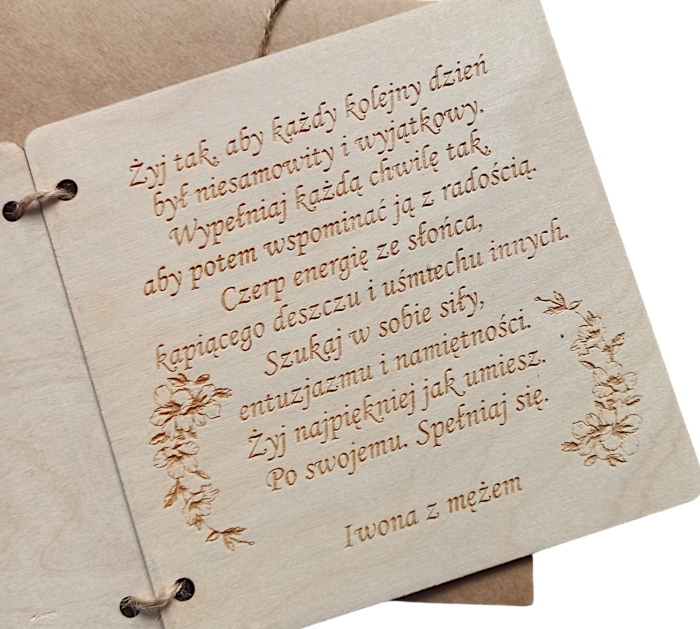 Żyj tak, aby każdy kolejny dzień
był niesamowity i wyjątkowy.
Wypełniaj każdą chwilę tak,
aby potem wspominać ją z radością.
Czerp energię ze słońca,
kapiącego deszczu i uśmiechu innych.
Szukaj w sobie siły,
entuzjazmu i namiętności.
Żyj najpiękniej jak umiesz.
Po swojemu. Spełniaj się.
Iwona z mężem